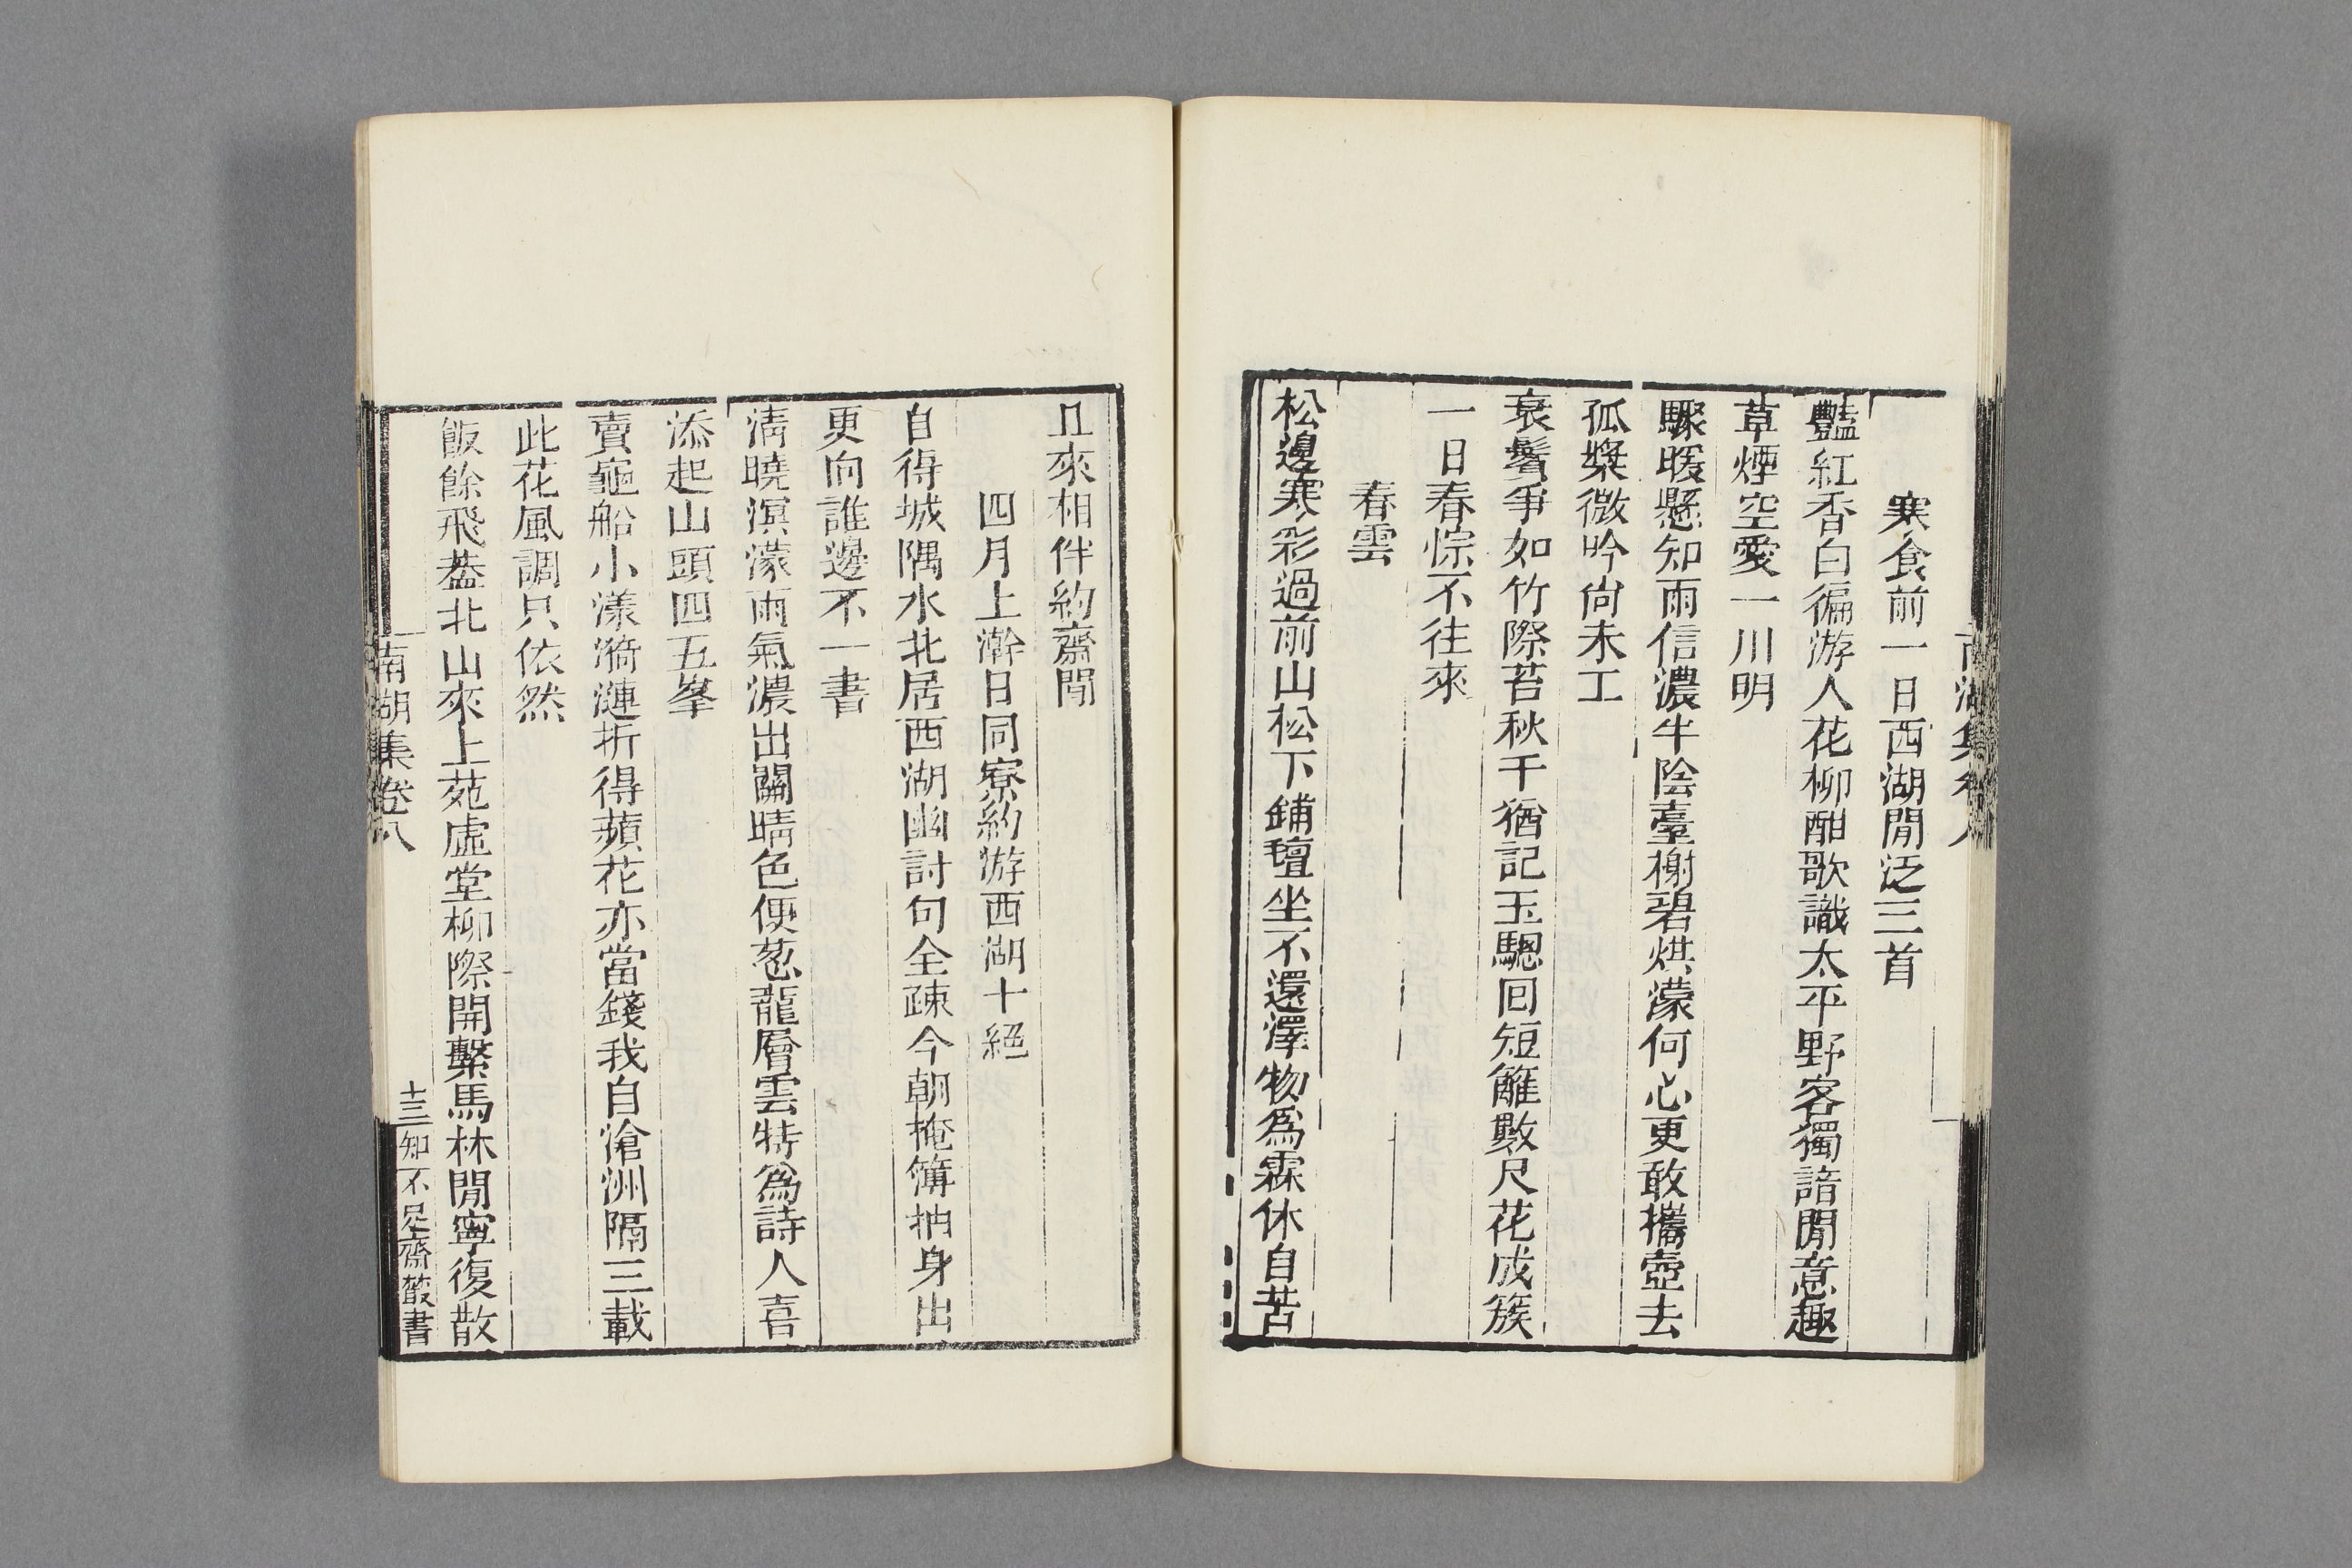 寒食前一日西湖閒泛三首
豔紅香白徧游人花柳酣歌識太平野客獨諳閒意趣
草煙空愛一川明
驟暖懸知雨信濃半陰臺榭碧烘濛何心更敢攜壺去
孤槳微吟尙未工
衰鬢爭如竹際苔秋千猶記玉驄回短籬數尺花成簇
一日春悰不往來
春雲
松邊寒彩過前山松下鋪氊坐不還澤物爲霖休自苦
且來相伴約齋閒
四月上澣日同寮約游西湖十絕
自得城隅水北居西湖幽討句全疎今朝掩簿抽身出
更向誰邊不一書
淸曉溟濛雨氣濃出關晴色便葱蘢層雲特爲詩人喜
添起山頭四五峯
賣龜船小漾漪漣折得蘋花亦當錢我自滄洲隔三載
此花風調只依然
飯餘飛葢北山來上苑虛堂柳際開繫馬林閒寧復散
南湖集卷八
十三
知不足齋叢書